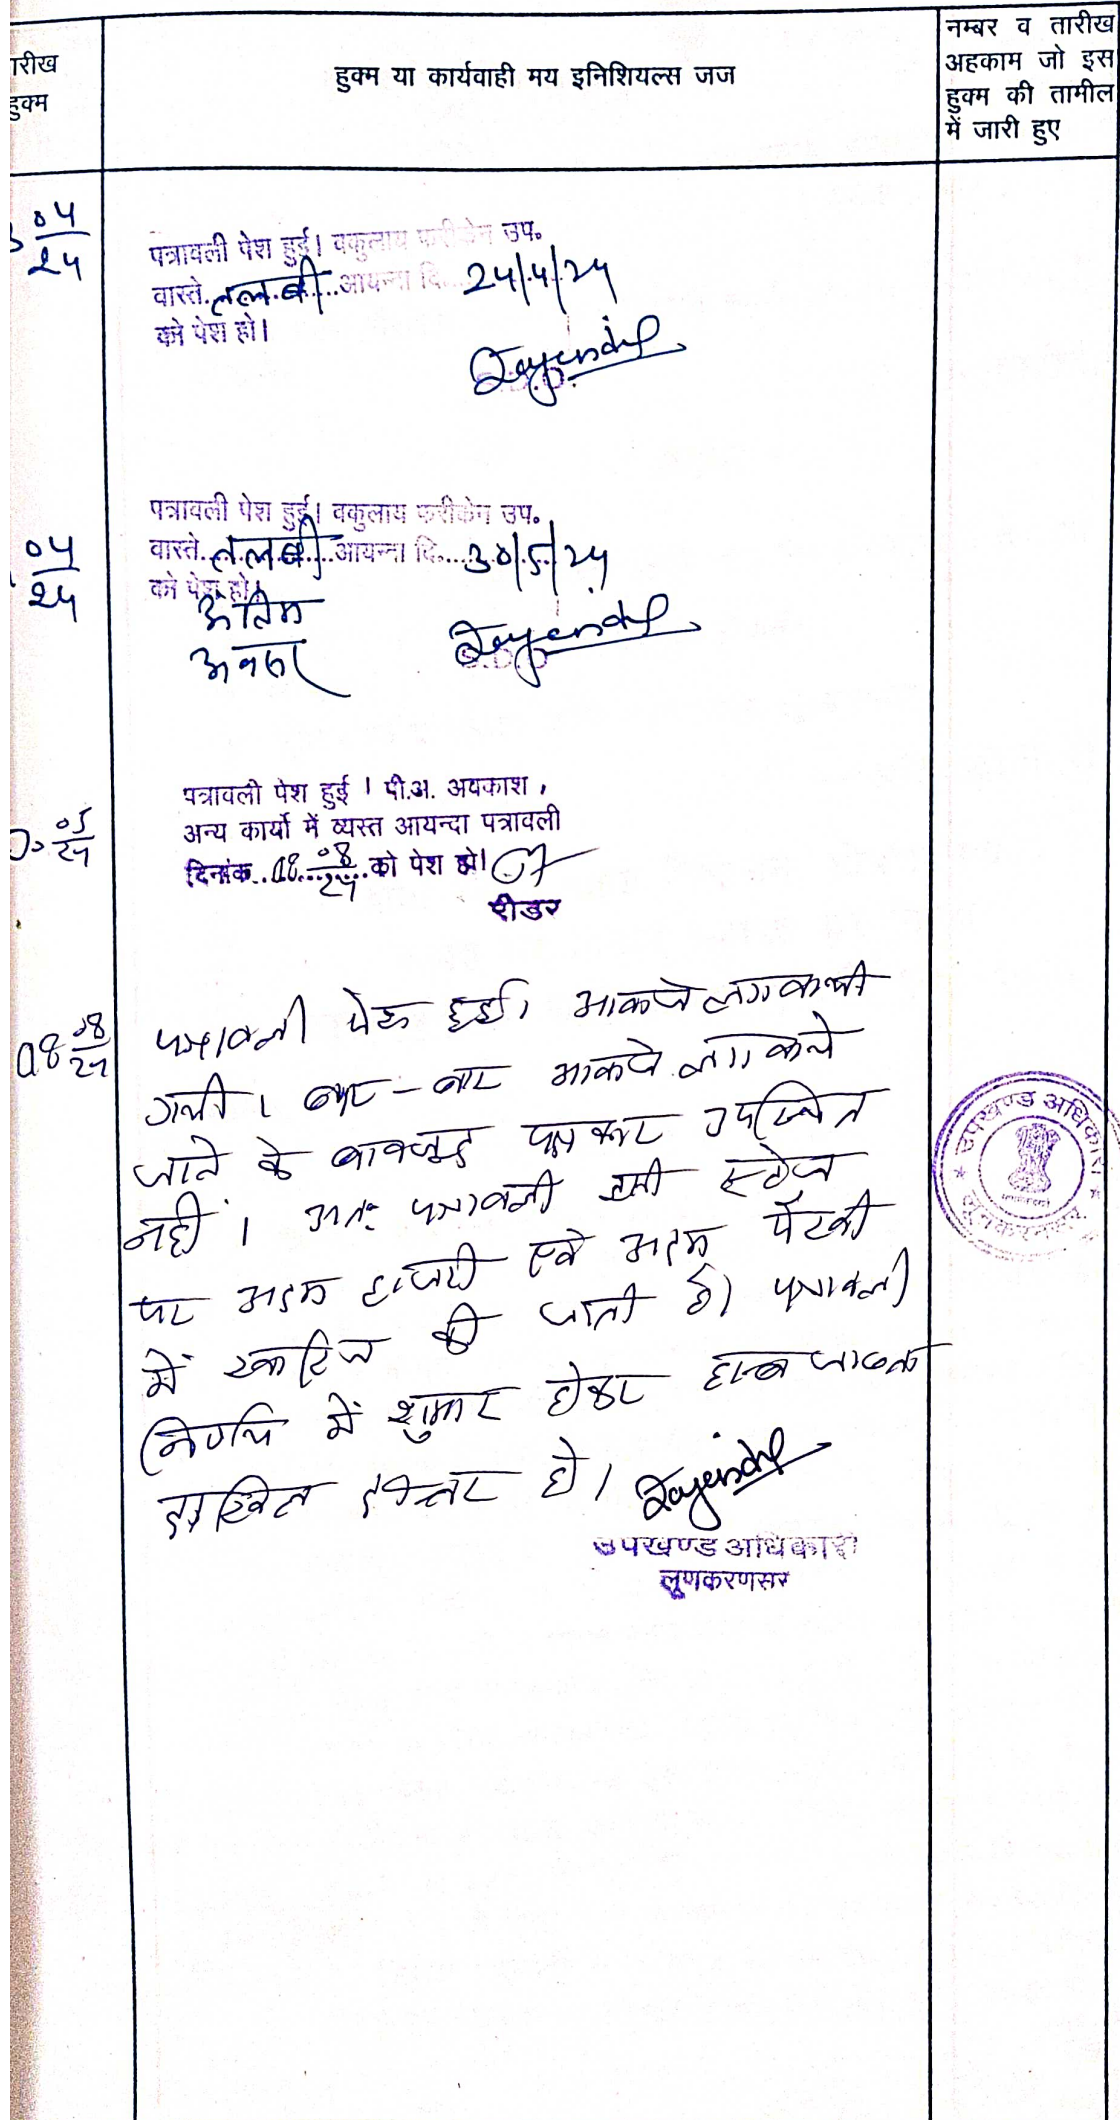 तारीख
हुक्म
हुक्म या कार्यवाही मय इनिशियल्स जज
नम्बर व तारीख
अहकाम जो इस
हुक्म की तामील
में जारी हुए
04
24
पत्रावली पेश हुई। वकुलाय फरीकेन उप.
वास्ते तलबी आयन्दा दि. 24/4/24
को पेश हो।
S.D.O.
04
24
पत्रावली पेश हुई। वकुलाय फरीकेन उप.
वास्ते तलबी आयन्दा दि. 30/5/24
को पेश हो।
अंतिम
अवसर
S.D.O
05
24
पत्रावली पेश हुई । पी.अ. अवकाश,
अन्य कार्यो में व्यस्त आयन्दा पत्रावली
दिनांक 08 08/24 को पेश हो।
रीडर
08 08/24
पत्रावली पेश हुई। आवाजे लगवायी
गयी। बार-बार आवाजे लगवाये
जाने के बावजूद पक्षकार उपस्थित
नहीं । अतः पत्रावली इसी स्टेज
पर अदम हाजरी एवं अदम पैरवी
में खारिज की जाती है। पत्रावली
निर्णय में शुमार होकर बाद जाब्ता
दाखिल दफ्तर हो।
उपखण्ड अधिकारी
लूणकरणसर
उपखण्ड अधिकारी
लूनकरनसर